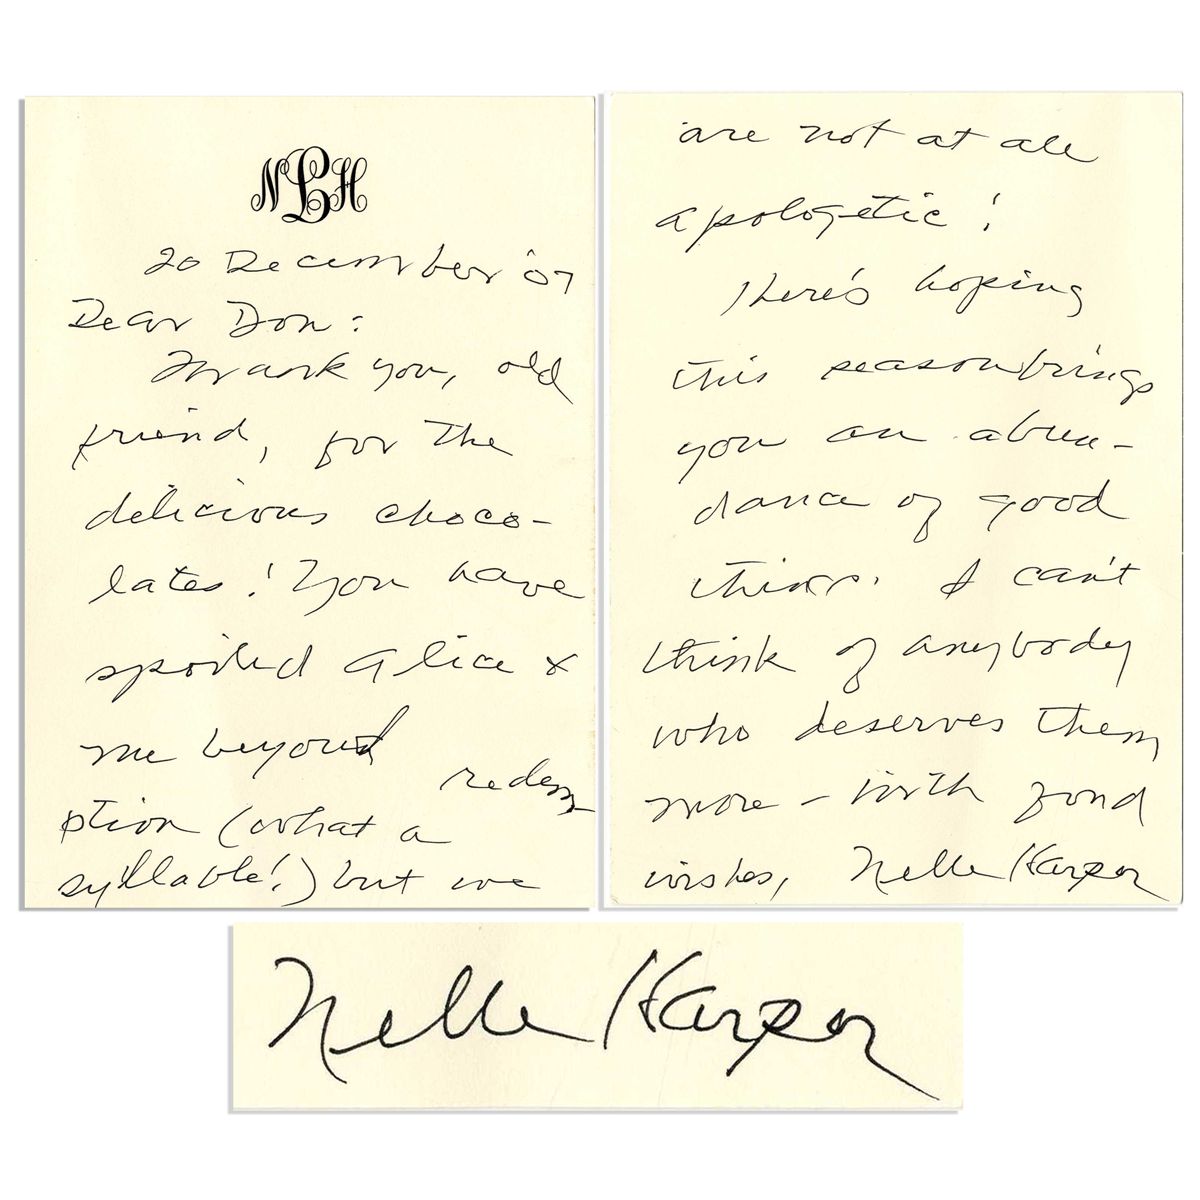 NLH
20 December '07
Dear Don:
Thank you, old
friend, for the
delicious choco-
lates! You have
spoiled Alice &
me beyond
redem-
ption (what a
syllable!) but we
are not at all
apologetic!
Here's hoping
this season brings
you an abun-
dance of good
things. I can't
think of anybody
who deserves them
more - with fond
wishes, Nelle Harper
Nelle Harper